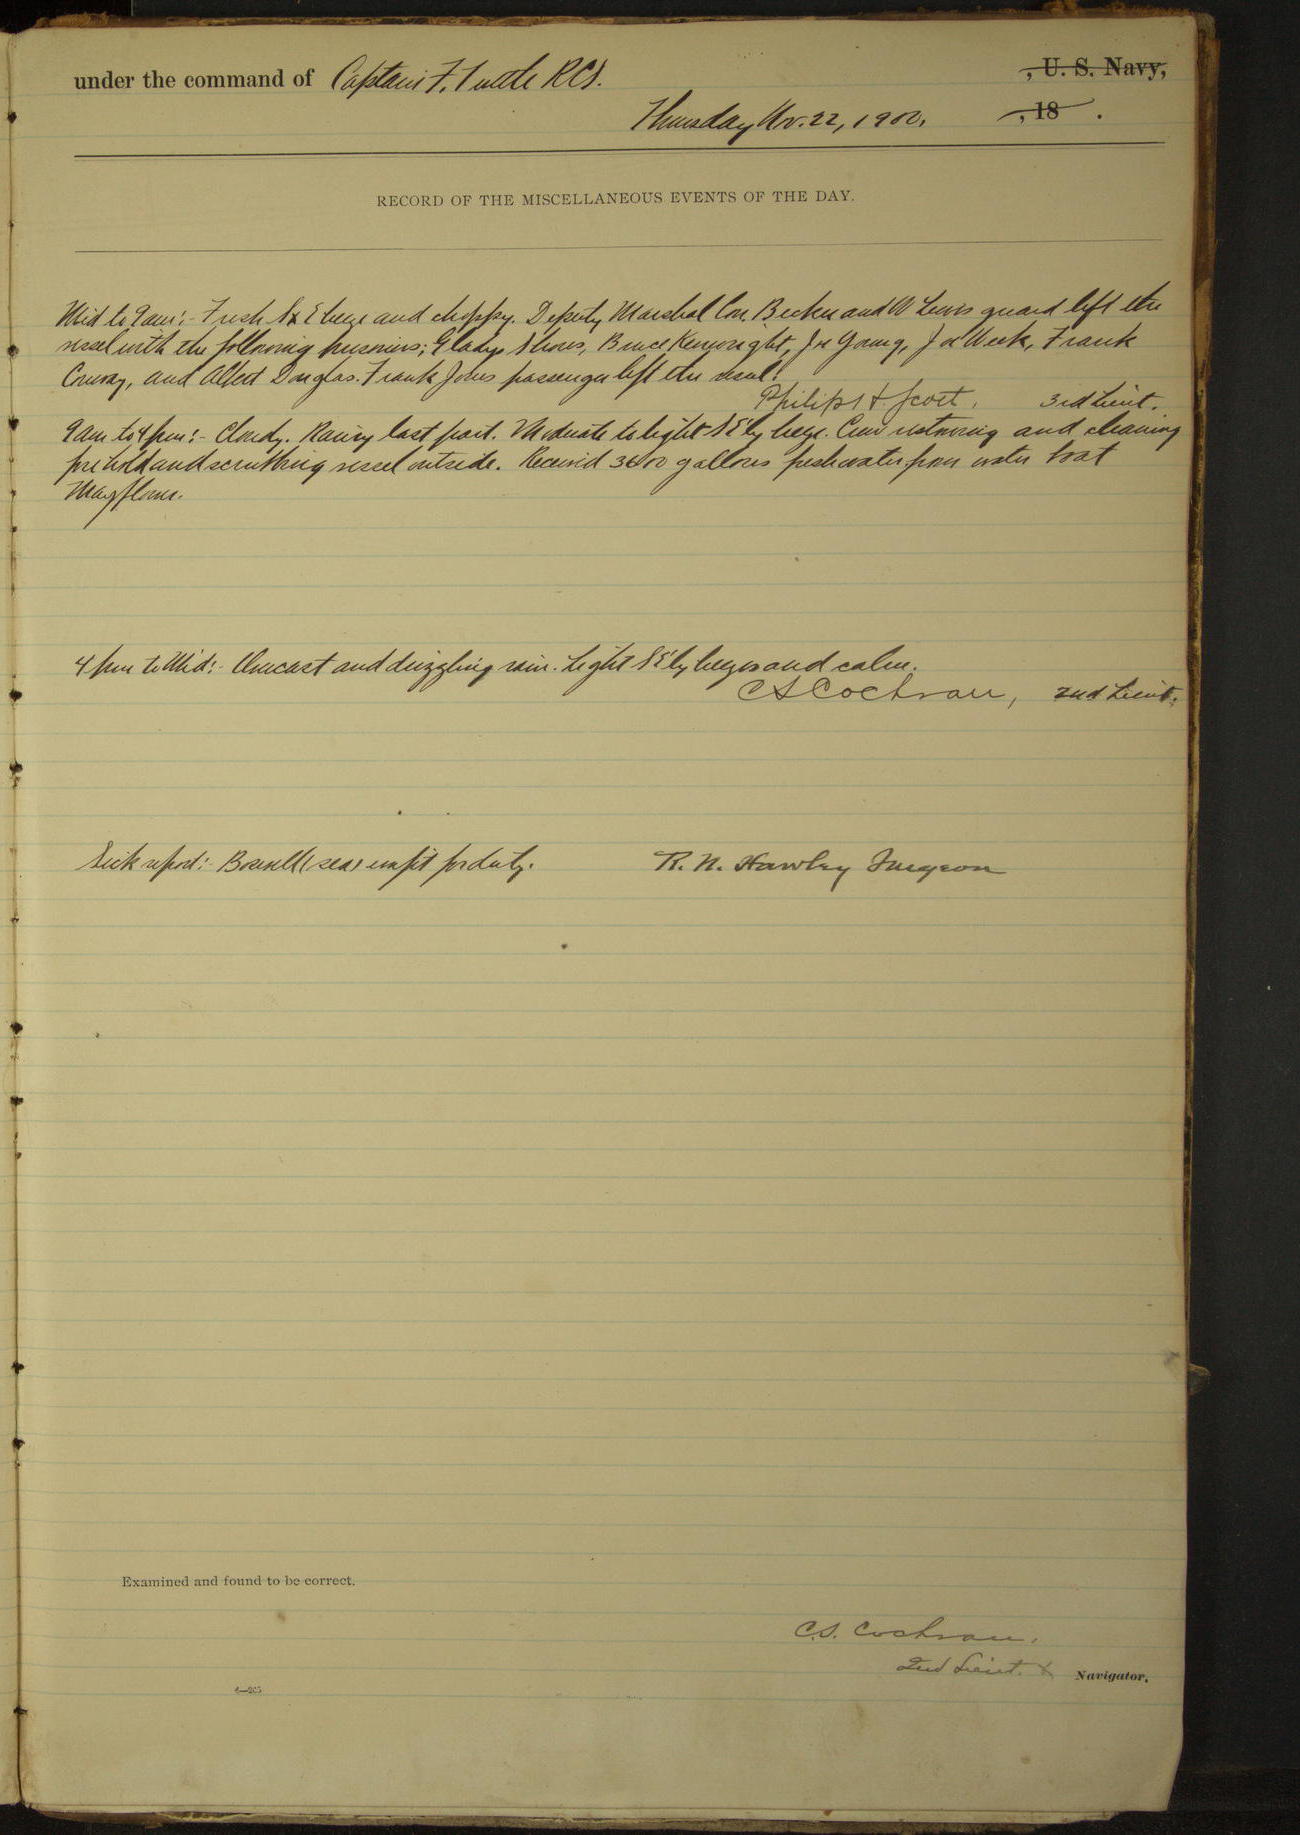 under the command of Captain F. Tuttle RCS. , U. S. Navy,
Thursday Nov. 22, 1900. , 18 .
RECORD OF THE MISCELLANEOUS EVENTS OF THE DAY.
Mid to 9 am:- Fresh SxE breeze and choppy. Deputy Marshal Con Becker and W Lewis guard left the
vessel with the following prisoners; Gladys Shores, Bruce Kenwright, Joe Young, Joe Week, Frank
Conway, and Albert Douglas. Frank Jones passenger left the vessel.
Philip H. Scott, 3rd Lieut.
9 am to 4 pm:- Cloudy. Rainy last part. Moderate to light SE'ly breeze. Crew restowing and cleaning
fore hold and scrubbing vessel outside. Received gallons fresh water from water boat
Mayflower.
4 pm to Mid:- Overcast and drizzling rain. Light SE'ly breezes and calm.
C S Cochran, 2nd Lieut.
Sick report:- Boswell (sea) unfit for duty. R. N. Hawley Surgeon
Examined and found to be correct.
C. S. Cochran.
2nd Lieut. & Navigator.
6—205